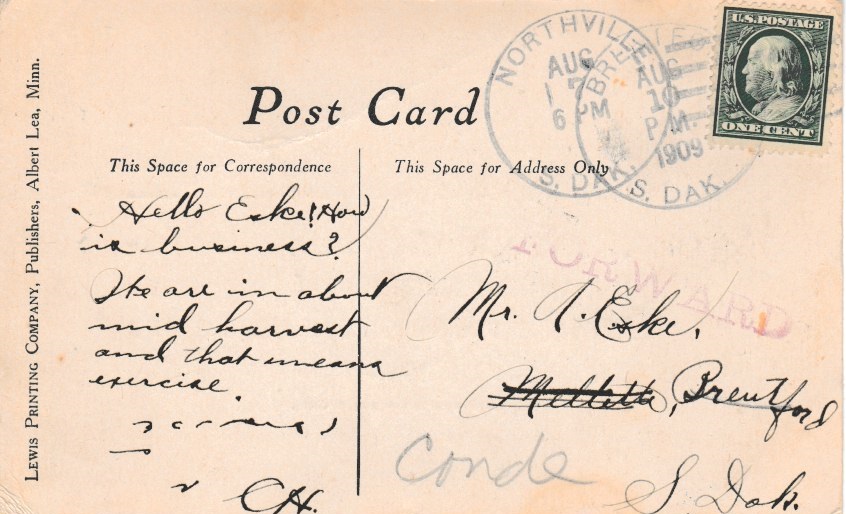 U.S. POSTAGE
ONE CENT
NORTHVILLE
AUG
6 PM
S. DAK.
AUG
10
P.M.
1909
S. DAK
Post Card
This Space for Correspondence
This Space for Address Only
LEWIS PRINTING COMPANY, Publishers, Albert Lea, Minn.
Hello Eske! How
is business?
We are in about
mid harvest
and that means
exercise
CH.
FORWARD
Mr. A. Eske,
Mellette, Brentford
Conde
S Dak.